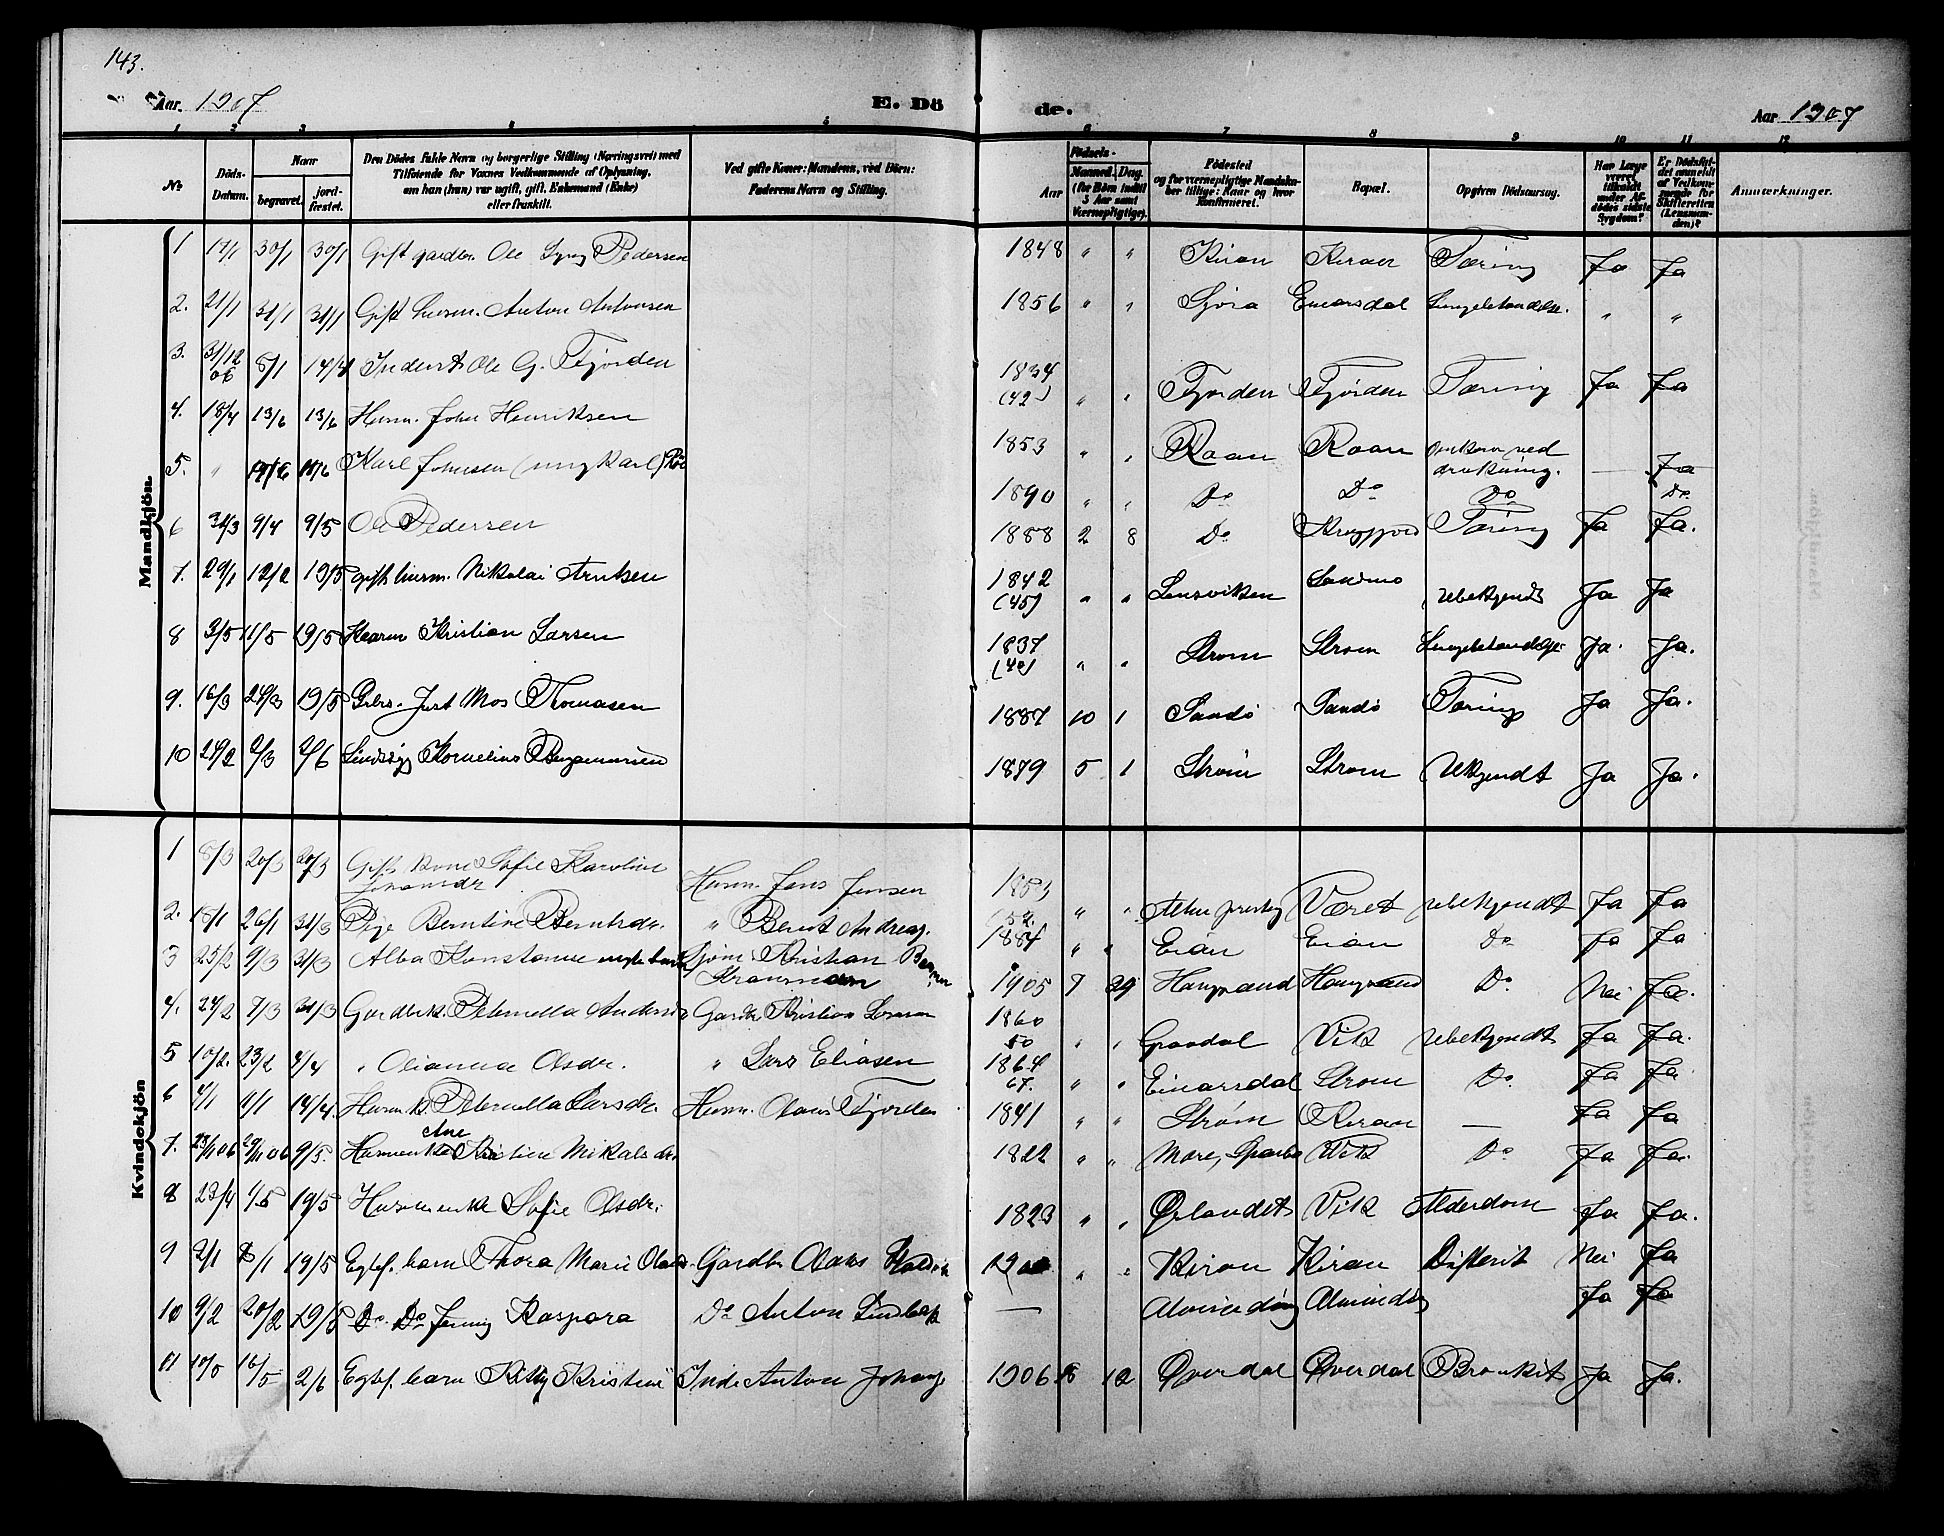 143.
Aar. 1907 E. Dö de. Aar 1907
1 2 3 4 5 6 7 8 9 10 11 12
No Döds-Datum. Naar begravet. jordfæstet. Den Dödes fulde Navn og borgerlige Stilling (Næringsvei) med Tilföiende for Voxnes Vedkommende af Oplysning, om han (hun) var ugift, gift, Enkemand (Enke) eller fraskilt. Ved gifte Koner: Mandens, ved Börn: Faderens Navn og Stilling. Aar Födsels- Maaned. Dag. (for Börn indtil 5 Aar samt Værnepligtige). Födested og for værnepligtige Mandskaber tillige: Naar og hvor konfirmeret. Bopæl. Opgiven Dödsaarsag. Har Læge været tilkaldt under Afdödes sidste Sygdom? Er Dödsfaldet anmeldt af Vedkommende for Skifteretten (Lensmanden)? Anmærkninger.
Mandkjön
1 17/1 30/1 30/1 Gift gaardbr. Ole Pedersen 1848 " " Kiran Kiran Tæring Ja Ja
2. 21/1 31/1 31/1 Gift Husm. Anton Antonsen 1856 " " Einarsdal Lungebetændelse. " "
3. 31/12 06 5/1 14/4 Inderst Ole G. Fjorden 1834 (42) " " Fjorden Fjorden Tæring Ja Ja
4. 18/4 13/6 13/6 Husm. John Henriksen 1853 " " Raan Raan omkom ved drukning. — Ja
5. " 13/6 Karl Johnsen (ungkarl) 1890 " " Do Do Do Do
6 31/3 9/4 9/5 Ole Pedersen 1888 2 8 Do Tæring Ja Ja.
7. 29/1 12/2 19/5 gift husm. Nikolai Arntsen 1842 (45) " " Lensviken Ubekjendt Ja Ja
8 3/5 11/5 19/5 Kristian Larsen 1837 (40) " " Strøm Strøm Lungebetændelse Ja. Ja.
9. 16/3 24/3 19/5 Just Mos Thomasen 1887 10 1 Sandö Sandö Tæring Ja Ja.
10 24/2 2/3 2/6 Sindssyg Kornelius Benjaminsen 1879 5 1 Strøm Strøm Ukjendt Ja Ja.
Kvindekjön
1 8/3 20/3 20/3 Gift kone Sofie Karoline Husm. Jens Jensen 1853 " " Været Ubekjendt Ja Ja
2. 15/1 26/1 31/3 Pige Berntine Berntsdr. " Bernt Andreas. 1884 " " Eian Eian Do Ja Ja
3 25/2 9/3 31/3 Alba Konstanse Kristian 1905 7 29 Do Nei Ja.
4. 24/2 7/3 31/3 Gardbrk. Peternella Gardbr Kristian 1860 " " Grandal Vik Ubekjendt Ja Ja.
5 10/2. 23/2 4/4 " Olianna Olsdr. " Lars Eliasen 1864 67. " " Einarsdal Strøm Do. Ja Ja
6 4/1 11/1 14/4. Husm. K. Peternella Larsdr. Husm. Olaus Fjorden 1841 " " Strøm Kiran — Ja Ja
7. 23/11 06 29/11 06 9/5. Husmenke Ane Kristine Nikolaisdr. 1822 " " Mære, Sparbu Vik Do Ja Ja.
8 23/4 1/5 19/5 Husmenke Sofie Olsdr. 1823 " " Ørlandet Vik Alderdom Ja Ja.
9 2/1 8/1 19/5 Egtef. barn Thora Marie Gardbr Olaus 1900 " " Kiran Kiran Difterit Nei Ja
10 9/2 20/2 19/5 Do. Do Jenny Kaspara Do Anton — Ja Ja
11 10/5 16/5 2/6 Egtef. barn Kitty Kristine Ind. Anton 1906 12 Øverdal Øverdal Bronkit Ja Ja.